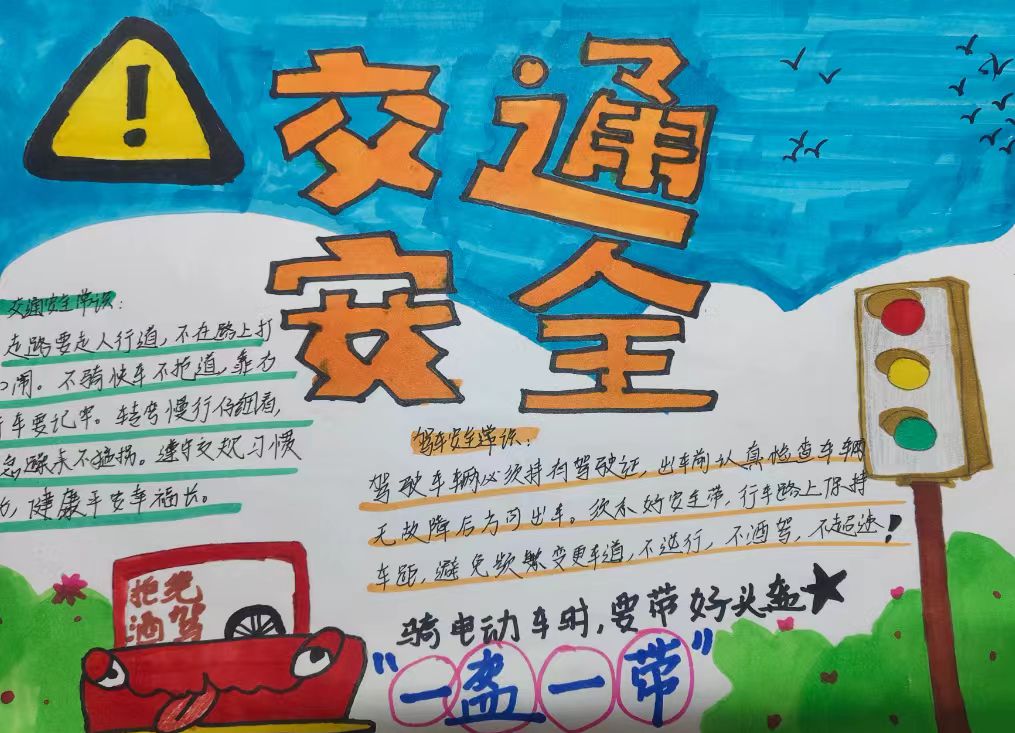 交通
安全
交通安全常识:
走路要走人行道,不在路上打
闹。不骑快车不抢道,靠右
行车要记牢。转弯慢行仔细看,
不猛拐。遵守交规习惯
,健康平安幸福长。
驾车安全常识:
驾驶车辆必须持有驾驶证,出车前认真检查车辆
无故障后方可出车。须系好安全带,行车路上保持
车距,避免频繁变更车道,不逆行,不酒驾,不超速!
骑电动车时,要带好头盔
"一盔一带"
拒绝
酒驾